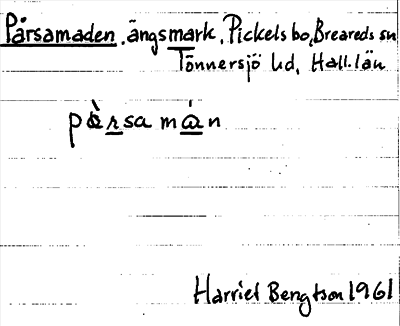 Pärsamaden, ängsmark, Pickelsbo, Breareds sn
Tönnersjö hd, Hall. län
pàrsa mán
Harriet Bengtson 1961